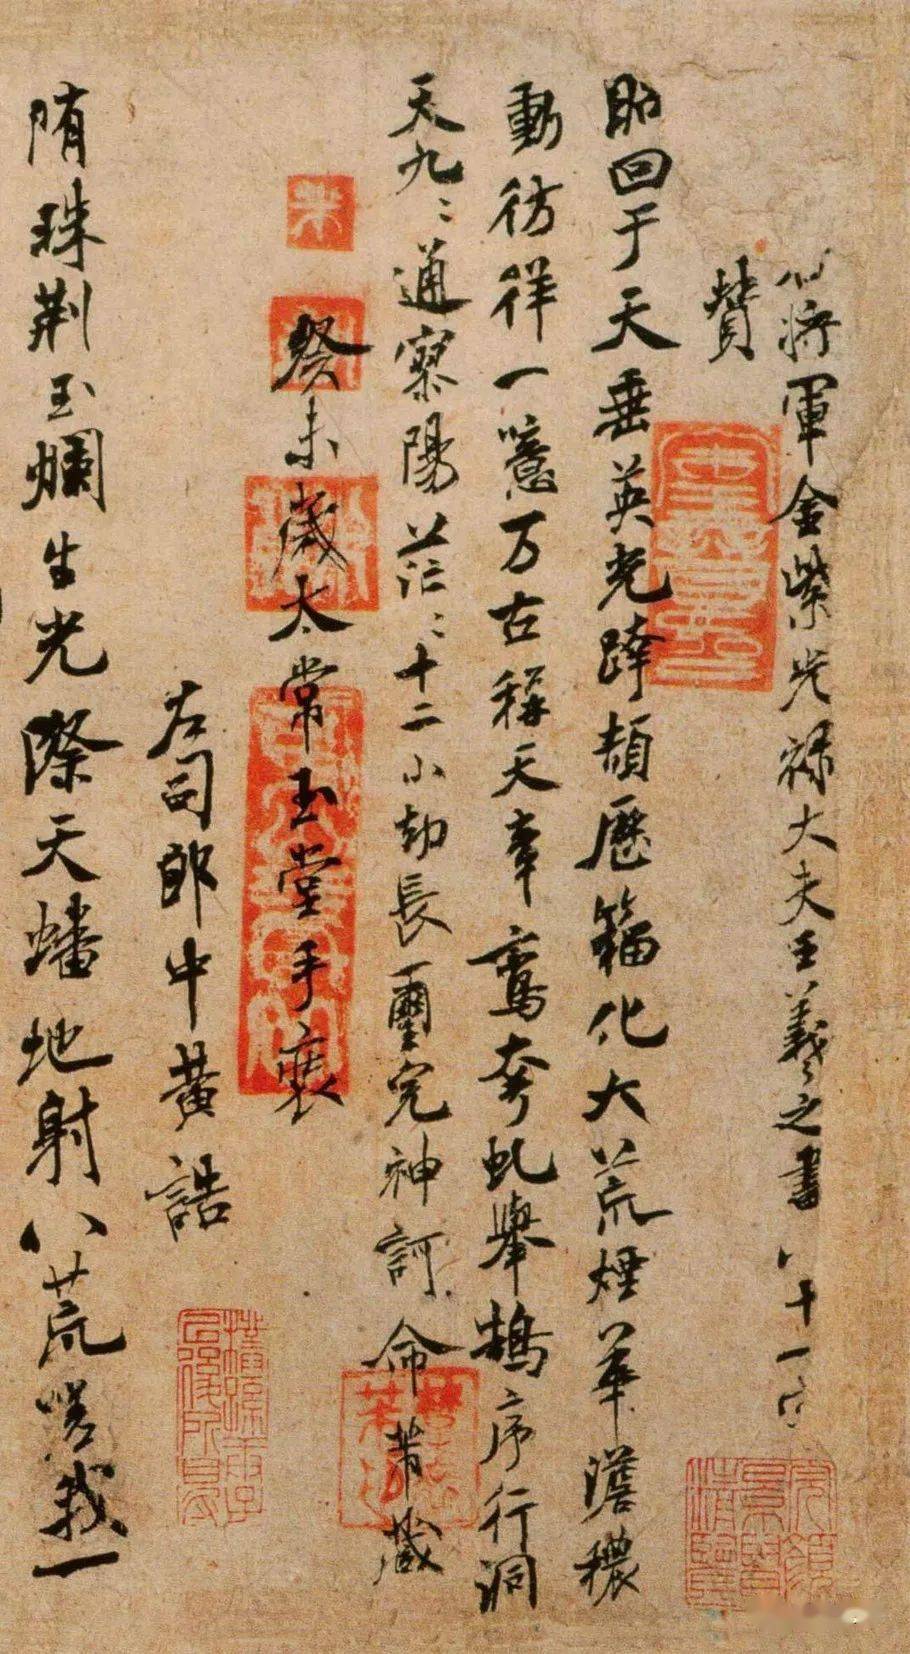 將軍金紫光祿大夫王羲之書八十一
贊
昭回于天垂英光跨頡歷籀化大荒煙華澹穠
動彷徉一噫万古稱天章鸞夸虬舉鵠序行洞
天九〻通寥陽茫〻十二小劫長璽完神訶命芾藏
癸未歲太常玉堂手裝
米
左司郎中黃誥
隋珠荆玉爛生光際天蟠地射八荒嗟我一